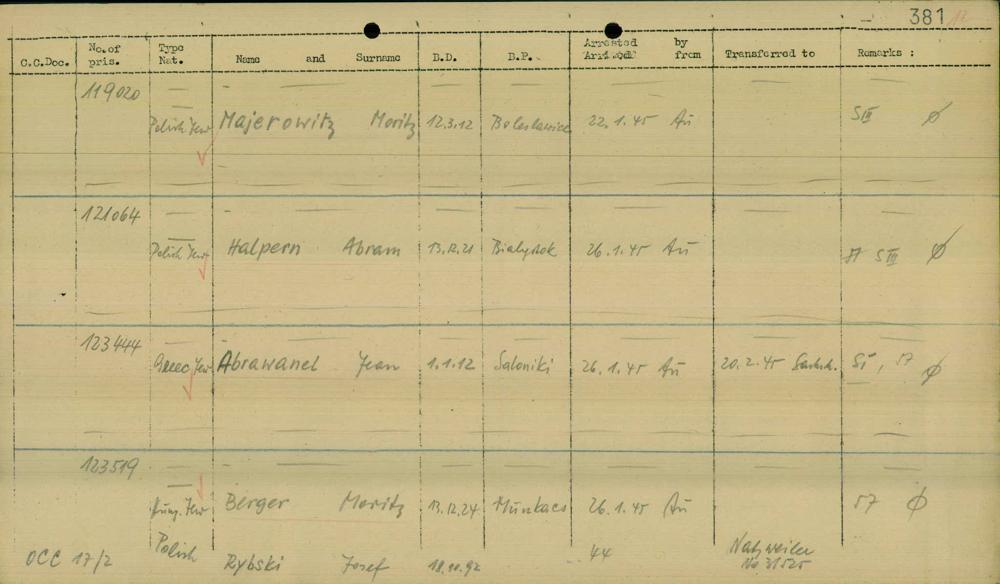 381
C.C.Doc. No.of pris. Type Nat. Name and Surname B.D. B.P. Arrested by from Transferred to Remarks :
119020
Polish Jew Majerowitz Moritz 12.3.12 Boleslawiec 22.1.45 Au SIII Ø
121064
Polish Jew Halpern Abram 13.12.21 Bialystok 26.1.45 Au SIII Ø
123444
Greec Jew Abrawanel Jean 1.1.12 Saloniki 26.1.45 Au 20.2.45 Sachsh. 57 Ø
123519
Hung. Jew Berger Moritz 13.12.24 Munkacs 26.1.45 Au 57 Ø
OCC 17/2 Polish Rybski Josef 18.10.92 44 Natzweiler
No 31525